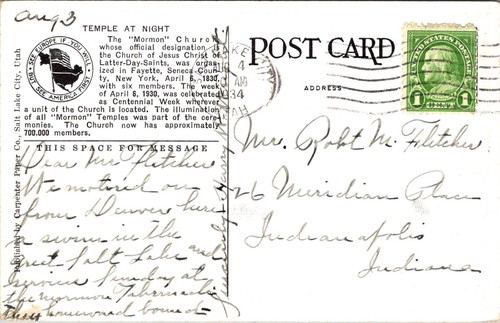 Aug 3
TEMPLE AT NIGHT
The "Mormon" Church
whose official designation is
the Church of Jesus Christ of
Latter-Day-Saints, was orga-
nized in Fayette, Seneca Coun-
ty, New York, April 6, 1830,
with six members. The week
of April 6, 1930, was celebrated
as Centennial Week wherever
a unit of the Church is located. The illumination
of all "Mormon" Temples was part of the cere-
monies. The Church now has approximately
700,000 members.
SEE EUROPE IF YOU WILL
BUT SEE AMERICA FIRST
Published by Carpenter Paper Co., Salt Lake City, Utah
THIS SPACE FOR MESSAGE
Dear Mr Fletcher
We motored on
from Denver here
a swim in the
Great Salt Lake and
service Sunday at
the mormon Tabernacle
then homeward bound
POST CARD
ADDRESS
LAKE
4
AM
1934
UTAH
UNITED STATES POSTAGE
1 1
Mr. Robt M. Fletcher
26 Meridian Place
Indianapolis
Indiana